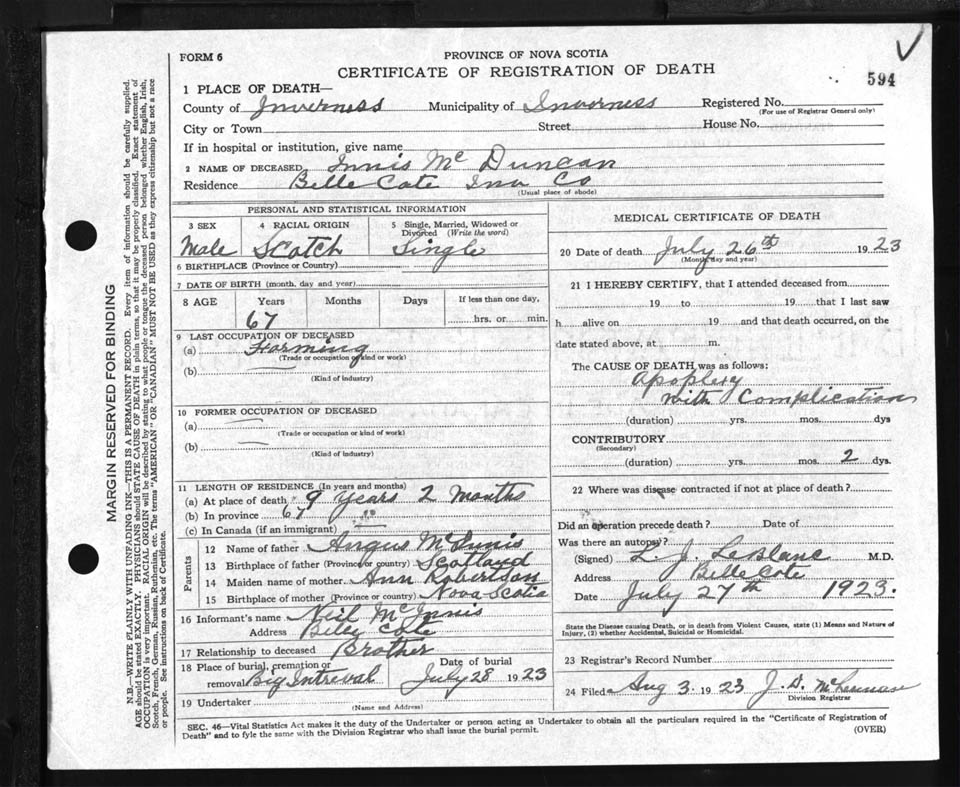 FORM 6
PROVINCE OF NOVA SCOTIA
CERTIFICATE OF REGISTRATION OF DEATH
594
1 PLACE OF DEATH—
County of Inverness Municipality of Inverness Registered No.
(For use of Registrar General only)
City or Town Street House No.
If in hospital or institution, give name
2 NAME OF DECEASED Innis Mc Duncan
Residence Belle Cote Inv Co
(Usual place of abode)
PERSONAL AND STATISTICAL INFORMATION
3 SEX 4 RACIAL ORIGIN 5 Single, Married, Widowed or Divorced (Write the word)
Male Scotch Single
6 BIRTHPLACE (Province or Country)
7 DATE OF BIRTH (month, day and year)
8 AGE Years Months Days If less than one day,
67 hrs. or min.
9 LAST OCCUPATION OF DECEASED
(a) Farming
(Trade or occupation or kind of work)
(b)
(Kind of industry)
10 FORMER OCCUPATION OF DECEASED
(a)
(Trade or occupation or kind of work)
(b)
(Kind of industry)
11 LENGTH OF RESIDENCE (In years and months)
(a) At place of death 9 Years 2 Months
(b) In province 67 "
(c) In Canada (if an immigrant)
Parents
12 Name of father Angus McInnis
13 Birthplace of father (Province or country) Scotland
14 Maiden name of mother Ann Robertson
15 Birthplace of mother (Province or country) Nova Scotia
16 Informant's name Neil McInnis
Address Belle Cote
17 Relationship to deceased Brother
18 Place of burial, cremation or Date of burial
removal Big Intreval July 28 1923
19 Undertaker
(Name and Address)
MEDICAL CERTIFICATE OF DEATH
20 Date of death July 26th 1923
(Month, day and year)
21 I HEREBY CERTIFY, that I attended deceased from
19 to 19 that I last saw
h alive on 19 and that death occurred, on the
date stated above, at m.
The CAUSE OF DEATH was as follows:
Apoplexy
with Complication
(duration) yrs. mos. dys
CONTRIBUTORY
(Secondary)
(duration) yrs. mos. 2 dys.
22 Where was disease contracted if not at place of death?
Did an operation precede death? Date of
Was there an autopsy?
(Signed) L. J. LeBlanc M.D.
Address Belle Cote
Date July 27th 1923.
State the Disease causing Death, or in death from Violent Causes, state (1) Means and Nature of
Injury, (2) whether Accidental, Suicidal or Homicidal.
23 Registrar's Record Number
24 Filed Aug 3 1923 J. D. McLennan
Division Registrar
SEC. 46—Vital Statistics Act makes it the duty of the Undertaker or person acting as Undertaker to obtain all the particulars required in the "Certificate of Registration of
Death" and to fyle the same with the Division Registrar who shall issue the burial permit.
(OVER)
MARGIN RESERVED FOR BINDING
N.B.—WRITE PLAINLY WITH UNFADING INK—THIS IS A PERMANENT RECORD. Every item of information should be carefully supplied.
AGE should be stated EXACTLY. PHYSICIANS should STATE CAUSE OF DEATH in plain terms, so that it may be properly classified. Exact statement of
OCCUPATION is very important. RACIAL ORIGIN will be described by stating to what people or tongue the deceased person belonged whether English, Irish,
Scotch, French, German, Russian, Ruthenian, etc. The terms "AMERICAN" OR "CANADIAN" MUST NOT BE USED as they express citizenship but not a race
or people. See instructions on back of Certificate.